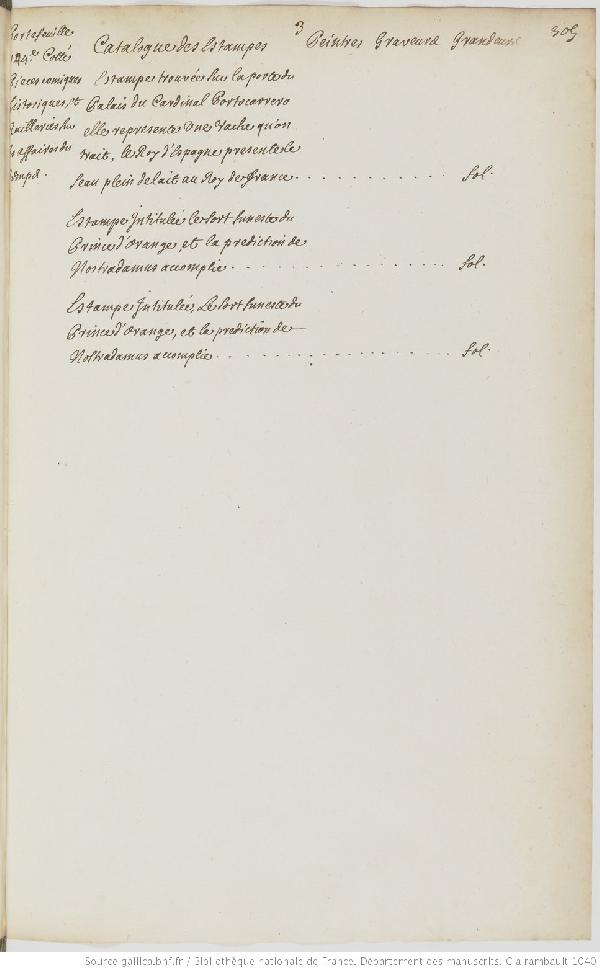 3
305
Portefeuille
144.e Collé
Pieces comiques
historiques, et
Railleries sur
les affaires du
temps.
Catalogue des Estampes Peintres Graveurs Grandeurs
Estampe trouvée sur la porte du
Palais du Cardinal Portocarrero
elle represente Une Vache qu'on
trait, le Roy d'Espagne presente le
seau plein de lait au Roy de France. . . . . . . . . . . . fol.
Estampe Intitulée le sort funeste du
Prince d'Orange, et la prediction de
Nostradamus acomplie. . . . . . . . . . . . . . . . fol.
Estampe Intitulée, Le sort funeste du
Prince d'Orange, et la prediction de
Nostradamus acomplie. . . . . . . . . . . . . . . . fol.
Source gallica.bnf.fr / Bibliothèque nationale de France. Département des manuscrits. Clairambault 1040